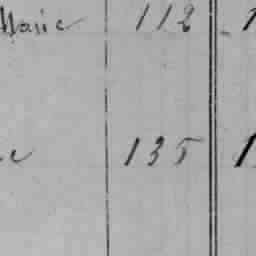 Marie 112
135